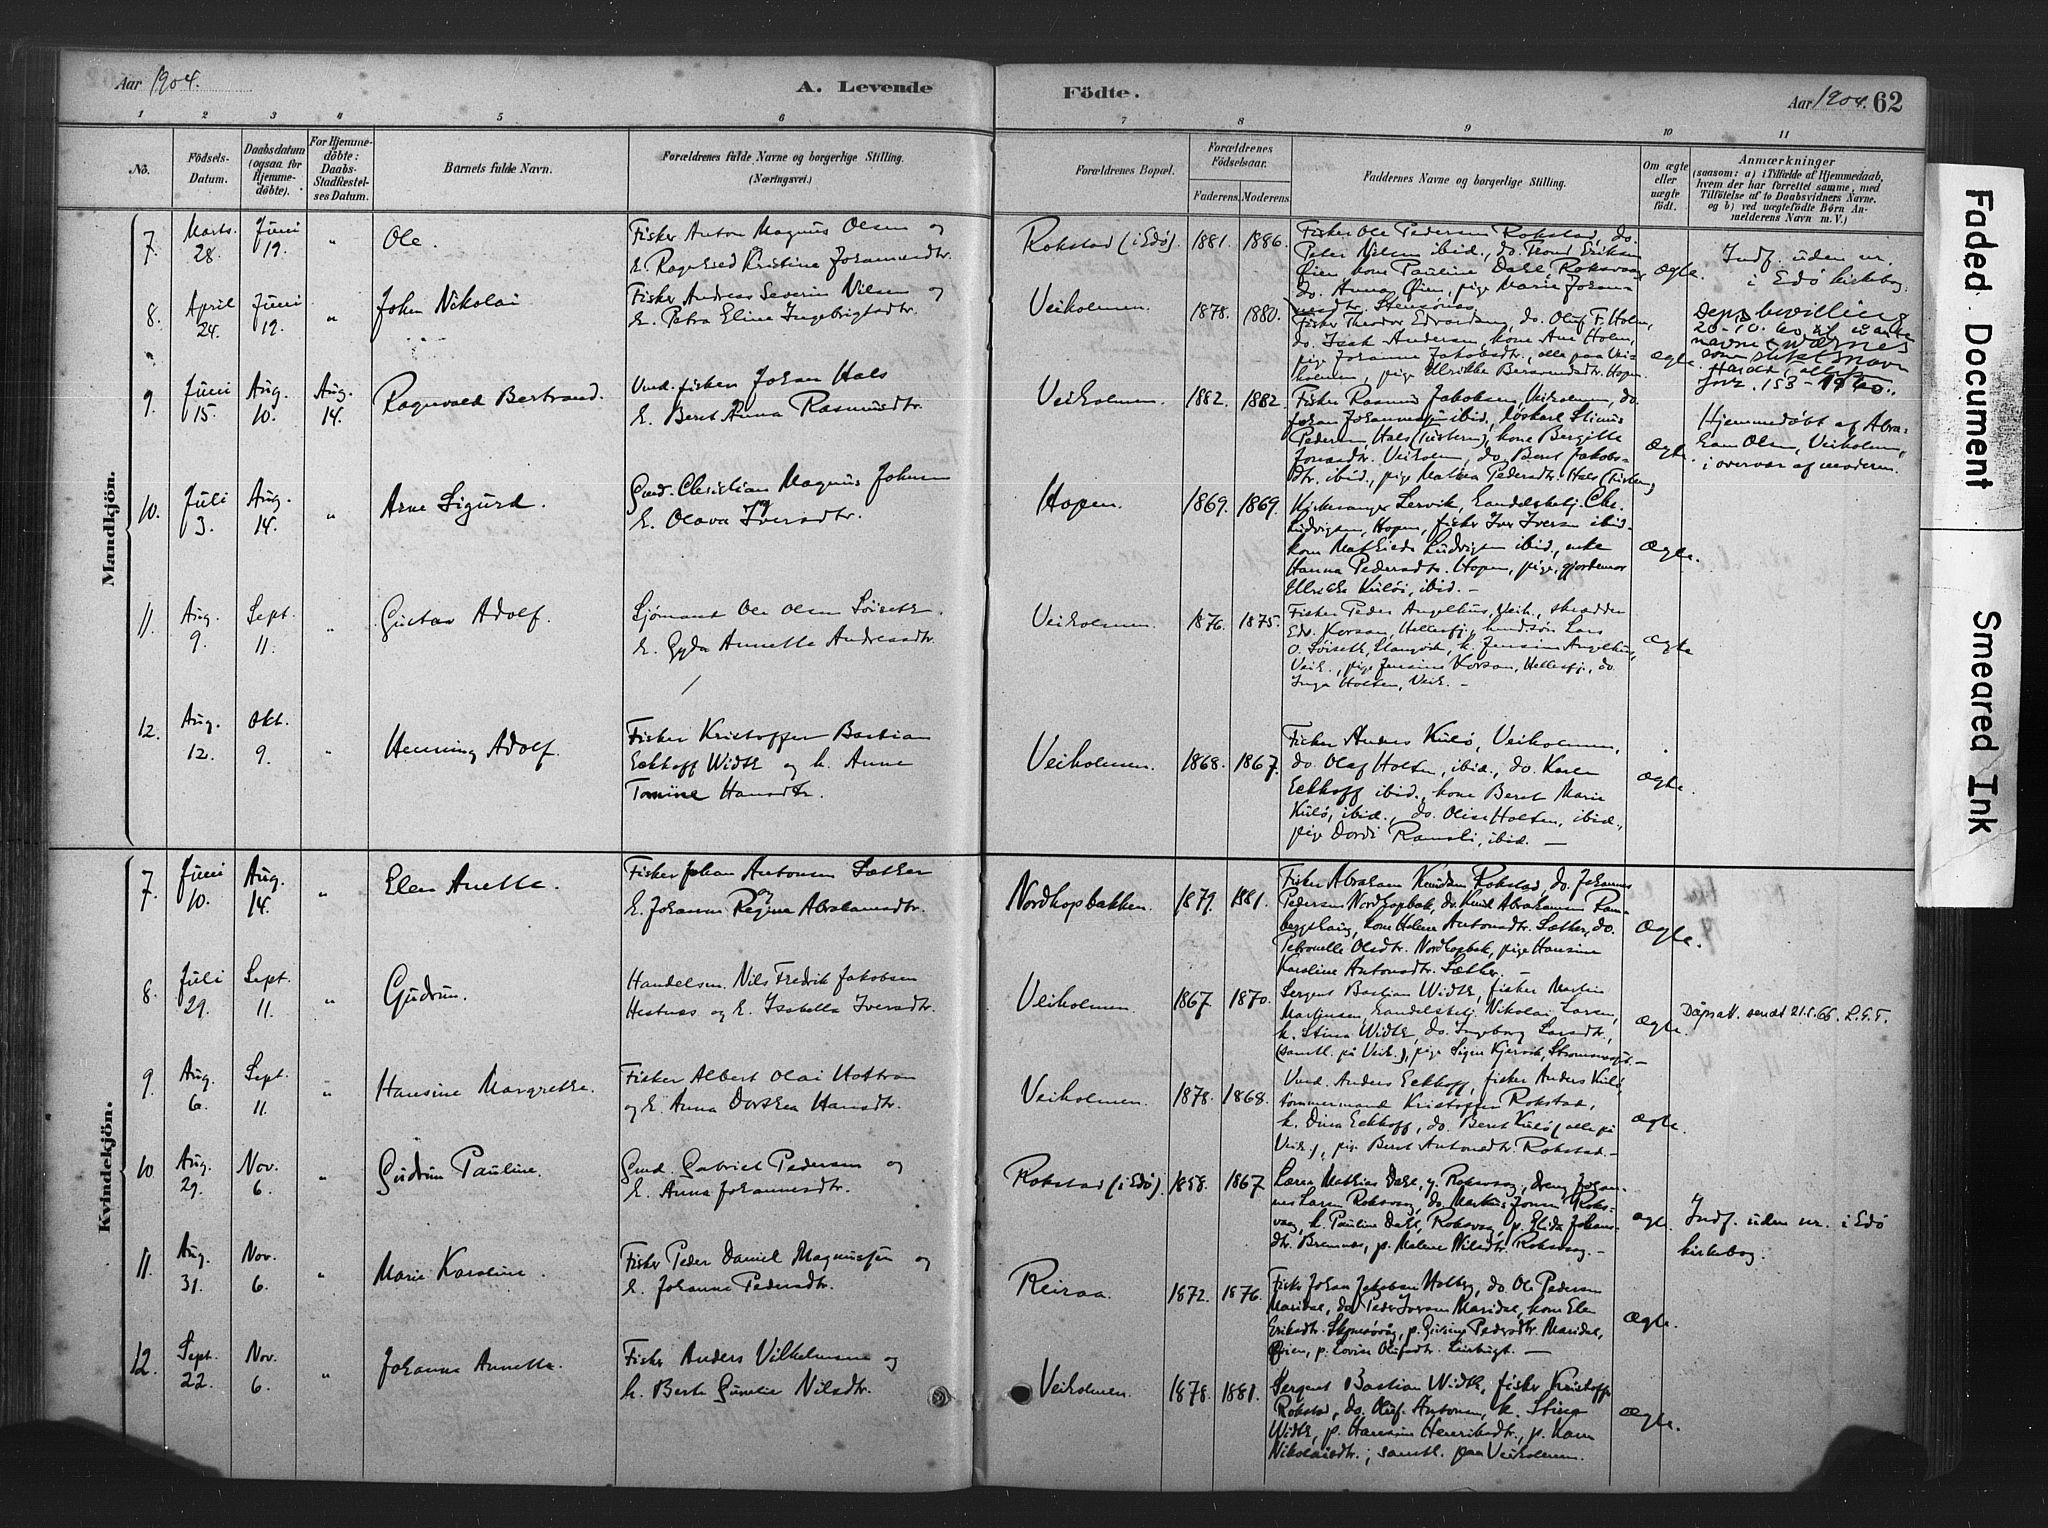 Aar 1904.
A. Levende
Födte.
Aar 1904. 62
1 2 3 4 5 6 7 8 9 10 11
No.
Födsels-Datum.
Daabsdatum (ogsaa for Hjemmedöbte).
For Hjemmedöbte: Daabs-Stadfæstelses Datum.
Barnets fulde Navn.
Forældrenes fulde Navne og borgerlige Stilling. (Næringsvei.)
Forældrenes Bopæl.
Forældrenes Födselsaar.
Faderens. Moderens.
Faddernes Navne og borgerlige Stilling.
Om ægte eller uægte födt.
Anmærkninger
(saasom: a) i Tilfælde af Hjemmedaab, hvem der har forrettet samme, med Tilföielse af to Daabsvidners Navne. og b) ved uægtefödte Börn Anmelderens Navn m. V.)
Mandkjön.
7. Marts 28. Juni 19. " Ole.
Fisker Anton Magnus Olsen og
h. Ragnhild Kristine Johannesdtr.
Rokstad (i Edö). 1881. 1886.
Fisker Ole Pedersen Rokstad, do.
Peter Nilsen ibid., do. Trond Eriksen
Öien, kone Pauline Dahl, Roksvaag,
do. Anna Öien, pige Marie Johannesdtr. Stensönes.
ægte.
Indf. uden nr.
i Edö kirkebog.
8. April 24. Juni 19. " John Nikolai
Fisker Andreas Severin Nilsen og
h. Petra Eline Ingebrigtsdtr.
Veiholmen. 1878. 1880.
Fisker Theodor Edvardsen, do. Oluf F. Holm,
do. Isak Andersen, kone Ane Holm,
pige Johanne Jakobsdtr., alle paa Veiholmen, pige Ulrikke Berntsdtr. Hopen.
ægte.
Deps bevilling
20-10.
navnet Wærnes
som slektsnavn
jorz. 153-1960.
9. Juni 15. Aug. 10. Aug. 14. Ragnvald Bertrand.
Und. fisker Johan Hals
h. Beret Anna Rasmusdtr.
Veiholmen. 1882. 1882.
Fisker Rasmus Jakobsen, Veiholmen, do.
Johan Johannesen ibid., löskarl Stinus
Pedersen, Hals (Tustern), kone Bergitte
Jonasdtr. Veiholm, do. Beret Jakobsdtr. ibid., pige Malena Pedersdtr. Hals (Tustern)
ægte.
Hjemmedöbt af Abraham Olsen, Veiholmen,
i overvær af moderen.
10. Juli 3. Aug. 14. " Arne Sigurd.
Gmd. Christian Magnus Johnsen
h. Olava Iversdtr.
Hopen. 1869. 1869.
Kirkesanger Lervik, handelsbetj. Chr.
Ludvigsen, Hopen, fisker Iver Iversen ibid.
kone Mathilde Ludvigsen ibid., enke
Hanna Pedersdtr. Hopen, pige, gjordemor
Ulrikke Kulöi, ibid. —
ægte.
11. Aug. 9. Sept. 11. " Gustav Adolf.
Sjömand Ole Olsen Söiseth.
h. Gyda Annette Andreasdtr.
Veiholmen. 1876. 1875.
Fisker Peder Angelhus, Veih., skrædder
Edv. Korsan, Hellesfj., hundsön Lars
O. Söiseth, Stangvik, k. Jensine Angelhus,
Veih., pige Jensine Korsan, Hellesfj., do.
Inga Holten, Veih. —
ægte
12. Aug. 12. Okt. 9. " Henning Adolf.
Fisker Kristoffer Bastian
Eckhoff Width og h. Anne
Tomine Hansdtr.
Veiholmen. 1868. 1867.
Fisker Anders Kulö, Veiholmen,
do. Olaf Holten, ibid., do. Karl
Eckhoff ibid., kone Beret Marie
Kulö, ibid., do. Oline Holten, ibid.,
pige Dordi Ramsli, ibid. —
ægte.
Kvindekjön.
7. Juni 10. Aug. 14. " Elen Anette.
Fisker Johan Antonsen Sæther
h. Johanna Regine Abrahamsdtr.
Nordhopbakken. 1879. 1881.
Fisker Abraham Knudsen Rokstad, do. Johannes
Pedersen Nordhopbak, do. Knud Abrahamsen Rambergshaug, kone Helene Antonsdtr. Sæther, do.
Petronelle Olsdtr. Nordhopbak, pige Hansine
Karoline Antonsdtr. Sæther. —
ægte.
8. Juli 29. Sept. 11. " Gudrun.
Handelsm. Nils Fredrik Jakobsen
Hestnes og h. Isabella Iversdtr.
Veiholmen 1867. 1870.
Sergent Bastian Width, fisker Martin
Martinsen, handelsbetj. Nikolai Larsen,
k. Stina Width, do. Ingeborg Larsdtr.,
(samtl. på Veih.), pige Signe Kjersvik, Strömmen
ægte.
Dåpsatt. sendt 21.1.66. L.G.T.
9 Aug. 6. Sept. 11. " Hansine Margrethe.
Fisker Albert Olai Hottran
og h. Anna Dorthea Hansdtr.
Veiholmen. 1878. 1868.
Und. Anders Eckhoff, fisker Anders Kulö,
tömmermand Kristoffer Rokstad,
k. Dina Eckhoff, do. Beret Kulö (alle på
Veih.), pige Beret Antonsdtr. Rokstad. —
ægte.
10 Aug. 29. Nov. 6. " Gudrun Pauline.
Gmd. Gabriel Pedersen og
h. Anna Johannesdtr.
Rokstad (i Edö). 1858. 1867.
Lærer Mathias Dahl, g. Roksvag, dreng Johannes Larsen Roksvag, do. Markus Jonsen Roksvag, k. Pauline Dahl, Roksvag, p. Elida Johansdtr. Bremnes, p. Malene Nilsdtr. Roksvag. —
ægte.
Indf. uden nr. i Edö
kirkebog.
11. Aug. 31. Nov. 6. " Marie Karoline.
Fisker Peder Daniel Magnussen og
h. Johanne Pedersdtr.
Reiraa. 1872. 1876.
Fisker Johan Jakobsen Holberg, do. Ole Pedersen
Maridal, do. Peder Iversen Maridal, kone Elen
Eriksdtr. Skjnesvåg, p. Gurine Pedersdtr. Maridal,
Öien, p. Lovise Olufsdtr. Leirbugt. —
ægte.
12. Sept. 22. Nov. 6. " Johanne Annette.
Fisker Anders Vilhelmsen og
h. Berte Gurelie Nilsdtr.
Veiholmen. 1878. 1881.
Sergent Bastian Width, fisker Kristoffer
Rokstad, do. Oluf Antonsen, k. Stina
Width, p. Hansine Henriksdtr., p. Karn
Nikolaisdtr.; samtl. paa Veiholmen.
ægte.
Faded Document
Smeared Ink